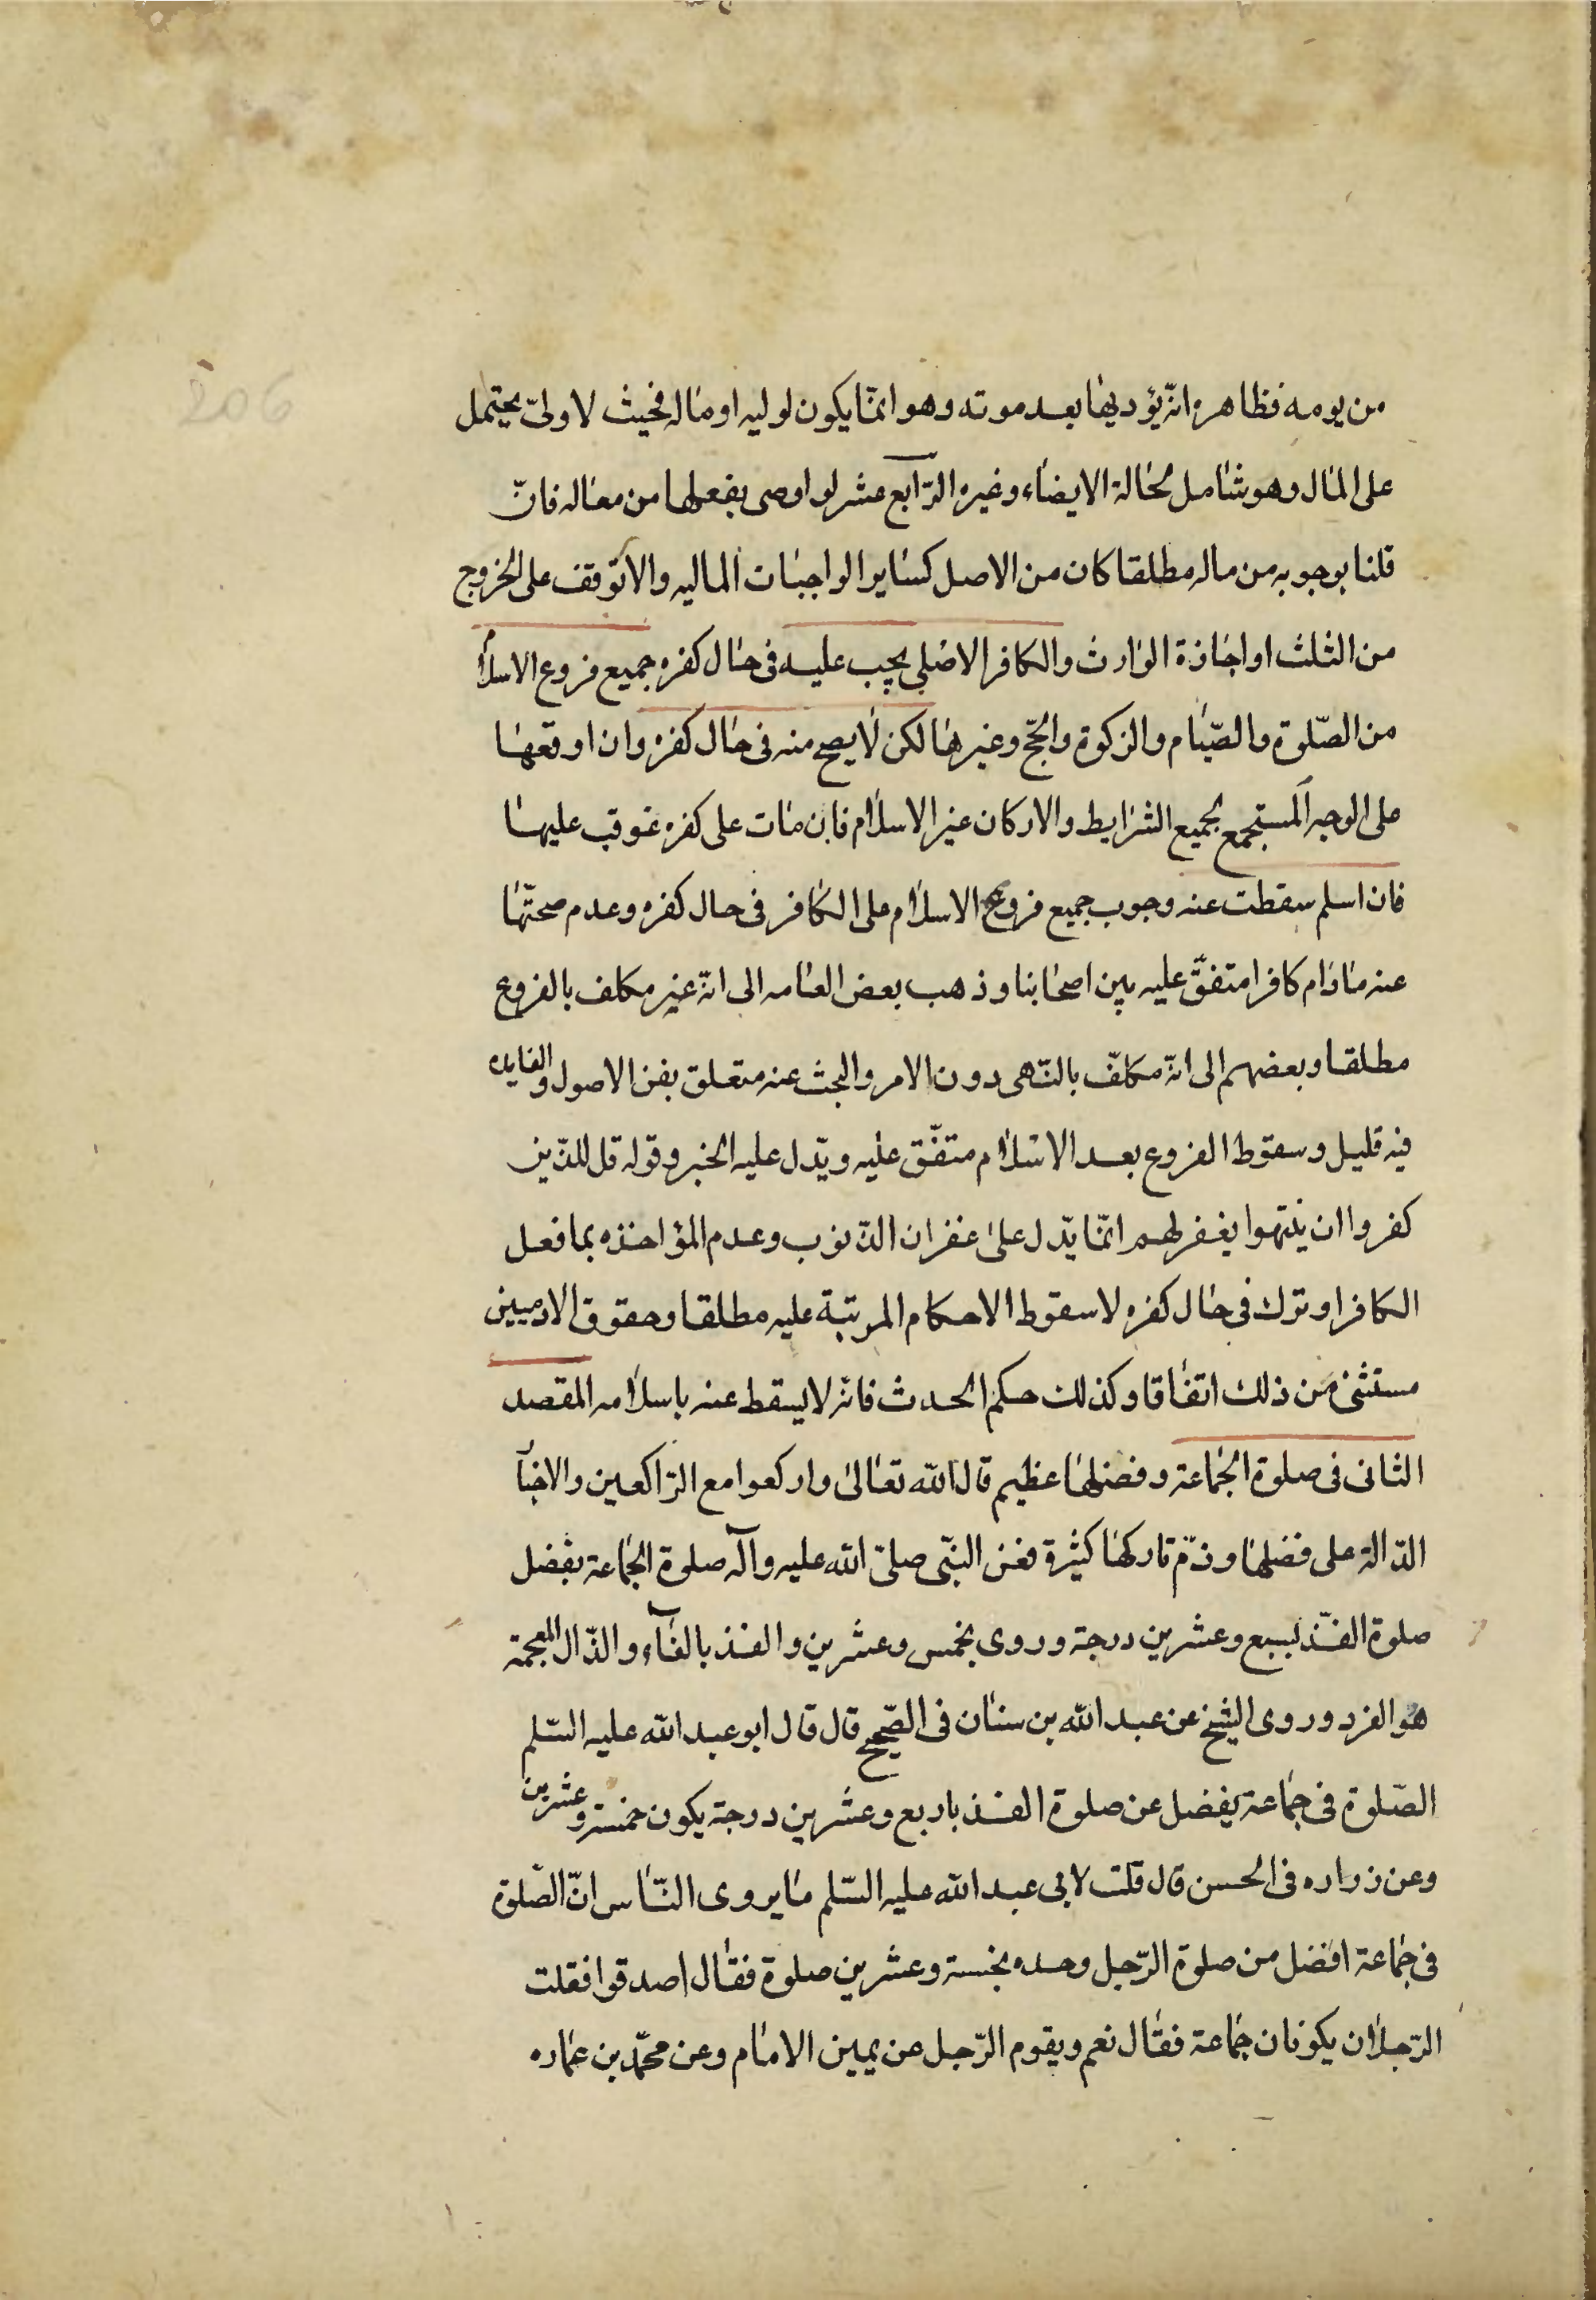 206
من يومه فظاهره انّه يؤديها بعد موته وهو انّما يكون لوليه او ماله فحيث لا ولىّ يحتمل
على المال وهو شامل لحالة الايصاء وغيره الرّابع عشر لو اوصى بفعلها من ماله فان
قلنا بوجوبه من ماله مطلقا كان من الاصل كساير الواجبات الماليه والا توقف على الخروج
من الثلث او اجازة الوارث والكافر الاصلى يجب عليه فى حال كفره جميع فروع الاسلام
من الصّلوة والصّيام والزكوة والحجّ وغيرها لكن لا يصح منه فى حال كفره وان اوقعها
على الوجه المستجمع لجميع الشرايط والاركان غير الاسلام فان مات على كفره عوقب عليها
فان اسلم سقطت عنه وجوب جميع فروع الاسلام على الكافر فى حال كفره وعدم صحتّها
عنه مادام كافرا متفق عليه بين اصحابنا وذهب بعض العامه الى انّه غير مكلف بالفروع
مطلقا وبعضهم الى انّه مكلّف بالنّهى دون الامر والبحث عنه متعلق بفن الاصول والفايده
فيه قليل وسقوط الفروع بعد الاسلام متفّق عليه ويدّل عليه الخبر وقوله قل للذّين
كفروا ان ينتهوا يغفر لهم انّما يدّل على غفران الذّنوب وعدم المؤاخذه بما فعل
الكافر او ترك فى حال كفره لا سقوط الاحكام المرتبة عليه مطلقا وحقوق الادميين
مستثنى من ذلك اتفاقا وكذلك حكم الحدث فانّه لا يسقط عنه باسلامه المقصد
الثانى فى صلوة الجماعة وفضلها عظيم قال الله تعالى واركعوا مع الرّاكعين والاخبار
الدّالة على فضلها وذمّ تاركها كثيرة فعن النبّى صلىّ الله عليه وآله صلوة الجماعة يفضل
صلوة الفذّ بسبع وعشرين درجة وروى بخمس وعشرين والفذ بالفاء والذّال المعجمة
هو الفرد وروى الشيخ عن عبد الله بن سنان فى الصّحيح قال قال ابو عبد الله عليه السّلم
الصّلوة فى جماعة يفضل عن صلوة الفذ باربع وعشرين درجة يكون خمسة وعشرين
وعن زراره فى الحسن قال قلت لابى عبد الله عليه السّلم ما يروى النّاس انّ الصّلوة
فى جماعة افضل من صلوة الرّجل وحده بخمسة وعشرين صلوة فقال صدقوا فقلت
الرّجلان يكونان جماعة فقال نعم ويقوم الرّجل عن يمين الامام وعن محمّد بن عماره